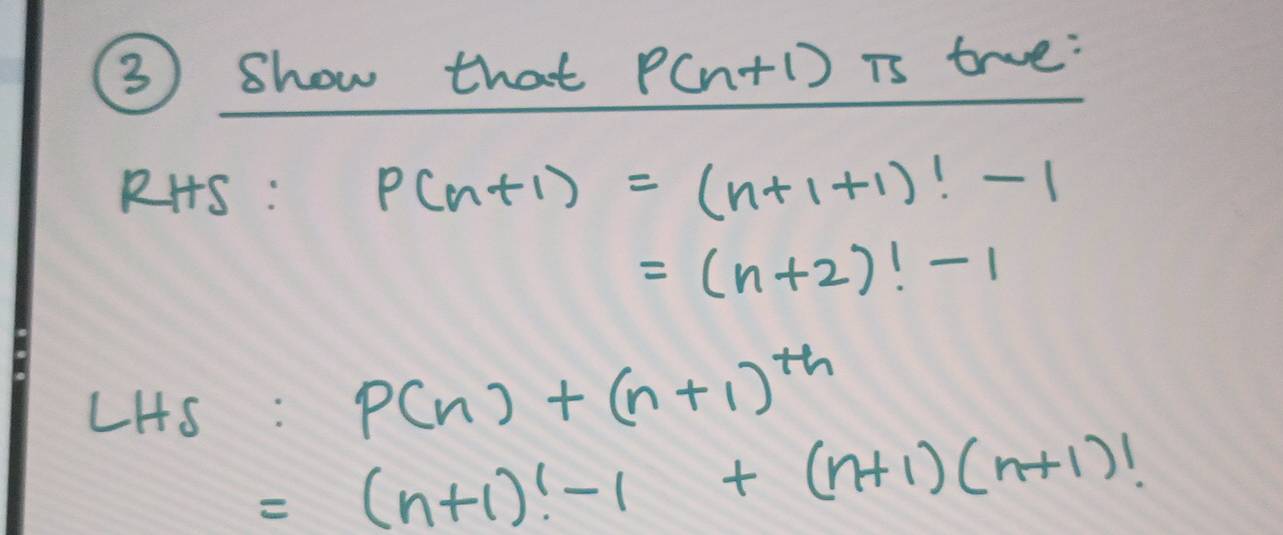 ③ Show that P(n+1) is true:
RHS : P(n+1) = (n+1+1)! - 1
= (n+2)! - 1
LHS : P(n) + (n+1)th
= (n+1)! - 1 + (n+1)(n+1)!